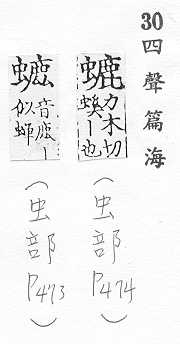 30 四聲篇海
螰
力木切
螇丨也
(虫部P474)
音鹿丨
似蟬
(虫部P473)